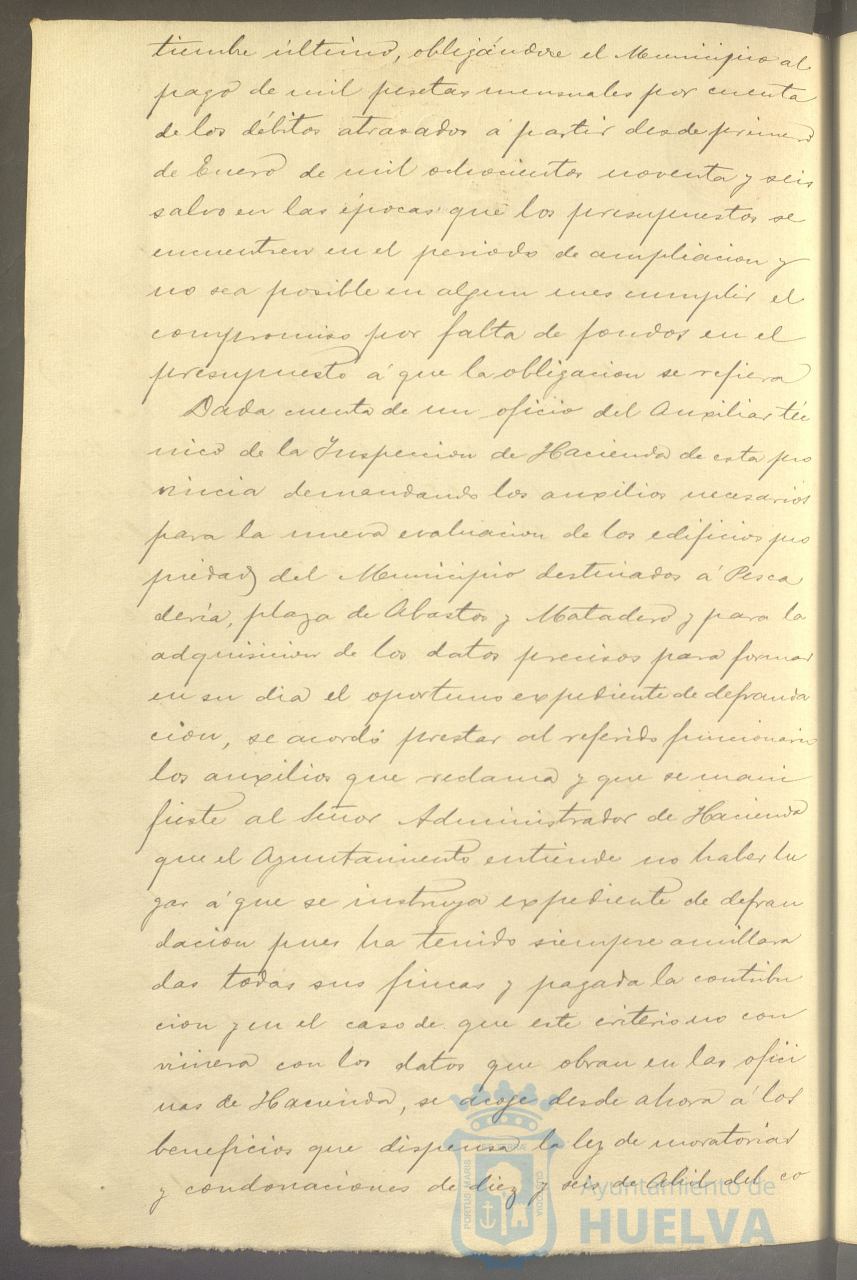 tiembre último, obligándose el Municipio al
pago de mil pesetas mensuales por cuenta
de los débitos atrasados á partir desde primero
de Enero de mil ochocientos noventa y seis
salvo en las épocas que los presupuestos se
encuentren en el periodo de ampliacion y
no sea posible en algun mes cumplir el
compromiso por falta de fondos en el
presupuesto á que la obligacion se refiera
Dada cuenta de un oficio del Auxiliar téc
nico de la Inspeccion de Hacienda de esta pro
vincia demandando los auxilios necesarios
para la nueva evaluacion de los edificios pro
piedad del Municipio destinados á Pesca
dería, plaza de Abastos y Matadero y para la
adquisicion de los datos precisos para formar
en su dia el oportuno expediente de defrauda
cion, se acordó prestar al referido funcionario
los auxilios que reclama y que se mani
fieste al Señor Administrador de Hacienda
que el Ayuntamiento entiende no haber lu
gar á que se instruya expediente de defrau
dacion pues ha tenido siempre amillara
das todas sus fincas y pagada la contribu
cion y en el caso de que este criterio no con
viniera con los datos que obran en las ofici
nas de Hacienda, se acoje desde ahora á los
beneficios que dispensa la ley de moratorias
y condonaciones de diez y seis de Abril del co
PORTUS MARIS ET TERRAE CUSTODIA
Ayuntamiento de
HUELVA